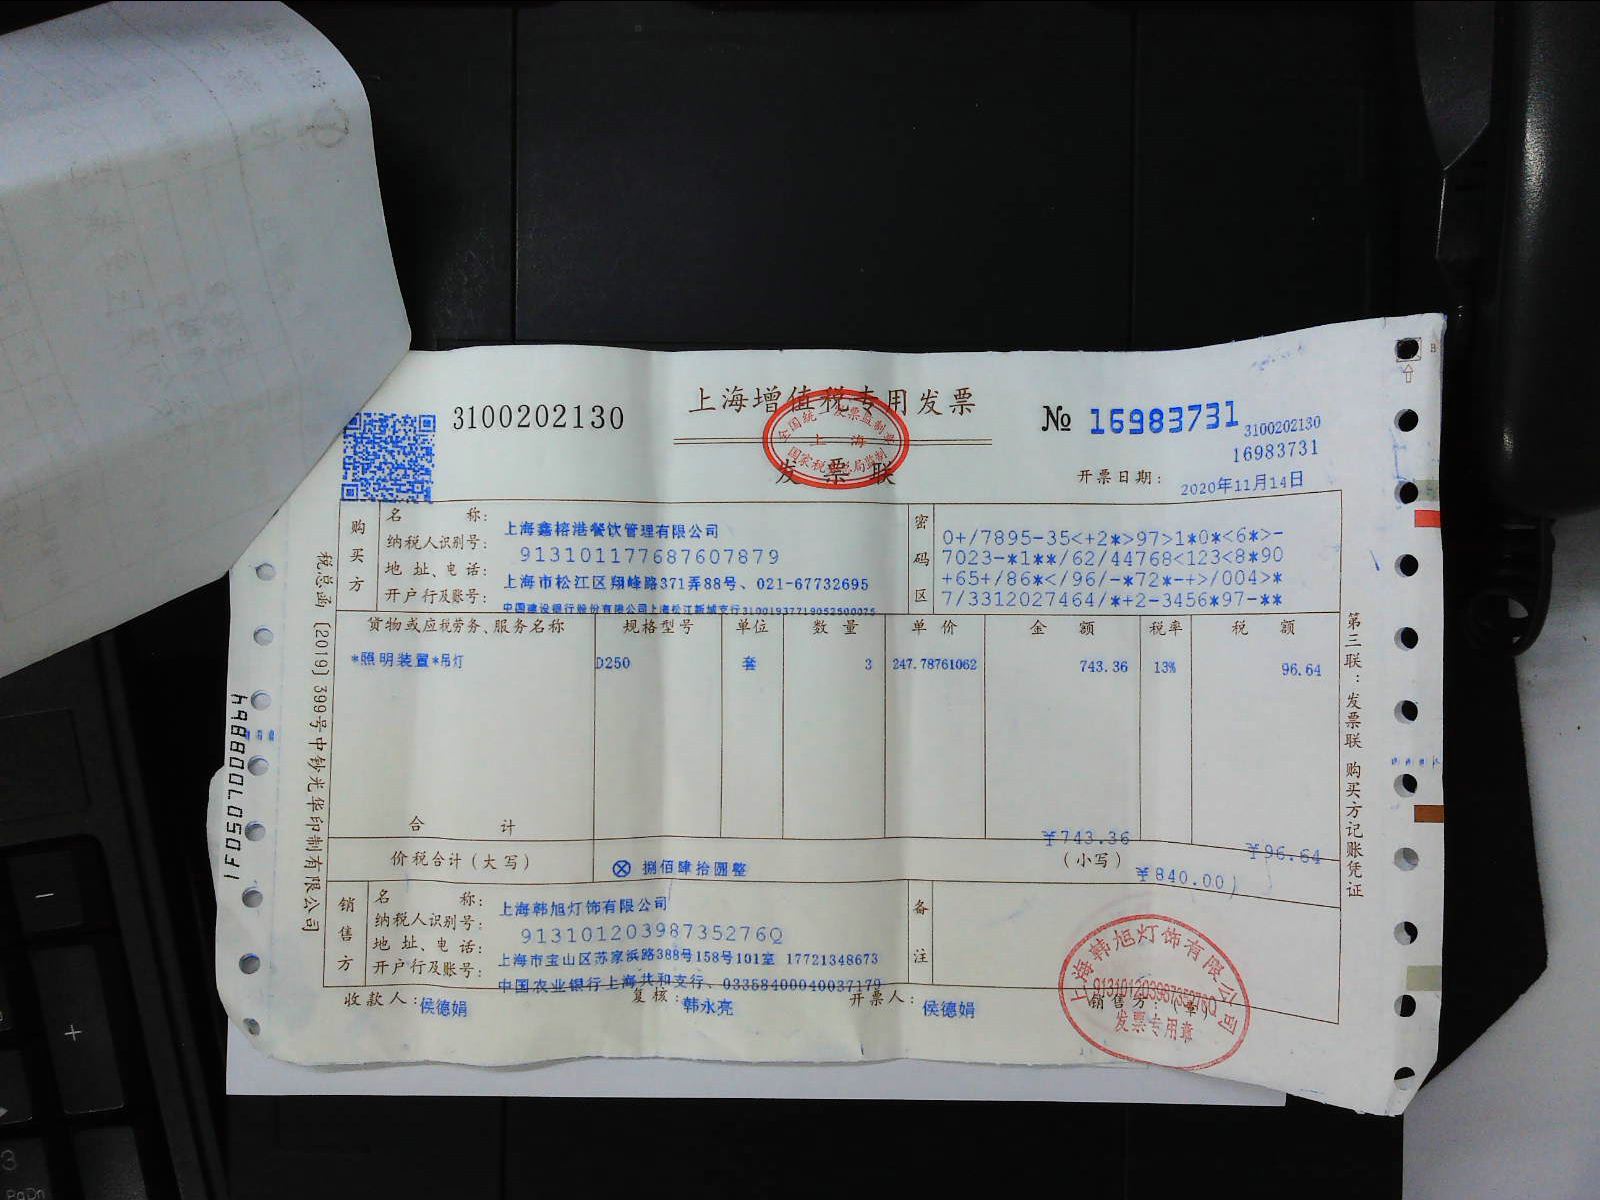 上海增值税专用发票
发票联
3100202130
№ 16983731
3100202130
16983731
开票日期: 2020年11月14日
全国统一发票监制章
上海
国家税务总局监制
购买方
名称: 上海鑫榕港餐饮管理有限公司
纳税人识别号: 913101177687607879
地址、电话: 上海市松江区翔峰路371弄88号、021-67732695
开户行及账号: 中国建设银行股份有限公司上海松江新城支行31001937719052500075
密码区
0+/7895-35<+2*>97>1*0*<6*>-
7023-*1**/62/44768<123<8*90
+65+/86*</96/-*72*-+>/004>*
7/3312027464/*+2-3456*97-**
货物或应税劳务、服务名称 规格型号 单位 数量 单价 金额 税率 税额
*照明装置*吊灯 D250 套 3 247.78761062 743.36 13% 96.64
合计 ¥743.36 ¥96.64
价税合计(大写) ⊗ 捌佰肆拾圆整 (小写) ¥840.00
销售方
名称: 上海韩旭灯饰有限公司
纳税人识别号: 91310120398735276Q
地址、电话: 上海市宝山区苏家浜路388号158号101室 17721348673
开户行及账号: 中国农业银行上海共和支行、03358400040037179
备注
收款人: 侯德娟 复核: 韩永亮 开票人: 侯德娟 销售方:(章)
上海韩旭灯饰有限公司
91310120398735276Q
发票专用章
税总函〔2019〕399号中钞光华印制有限公司
第三联:发票联 购买方记账凭证
B
PgDn
3
+
-